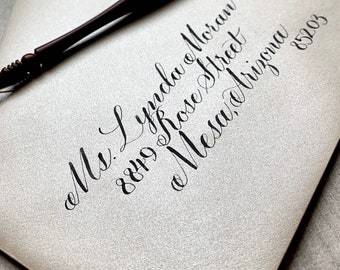 Ms. Lynda Moran
8849 Rose Street
Mesa, Arizona
85203